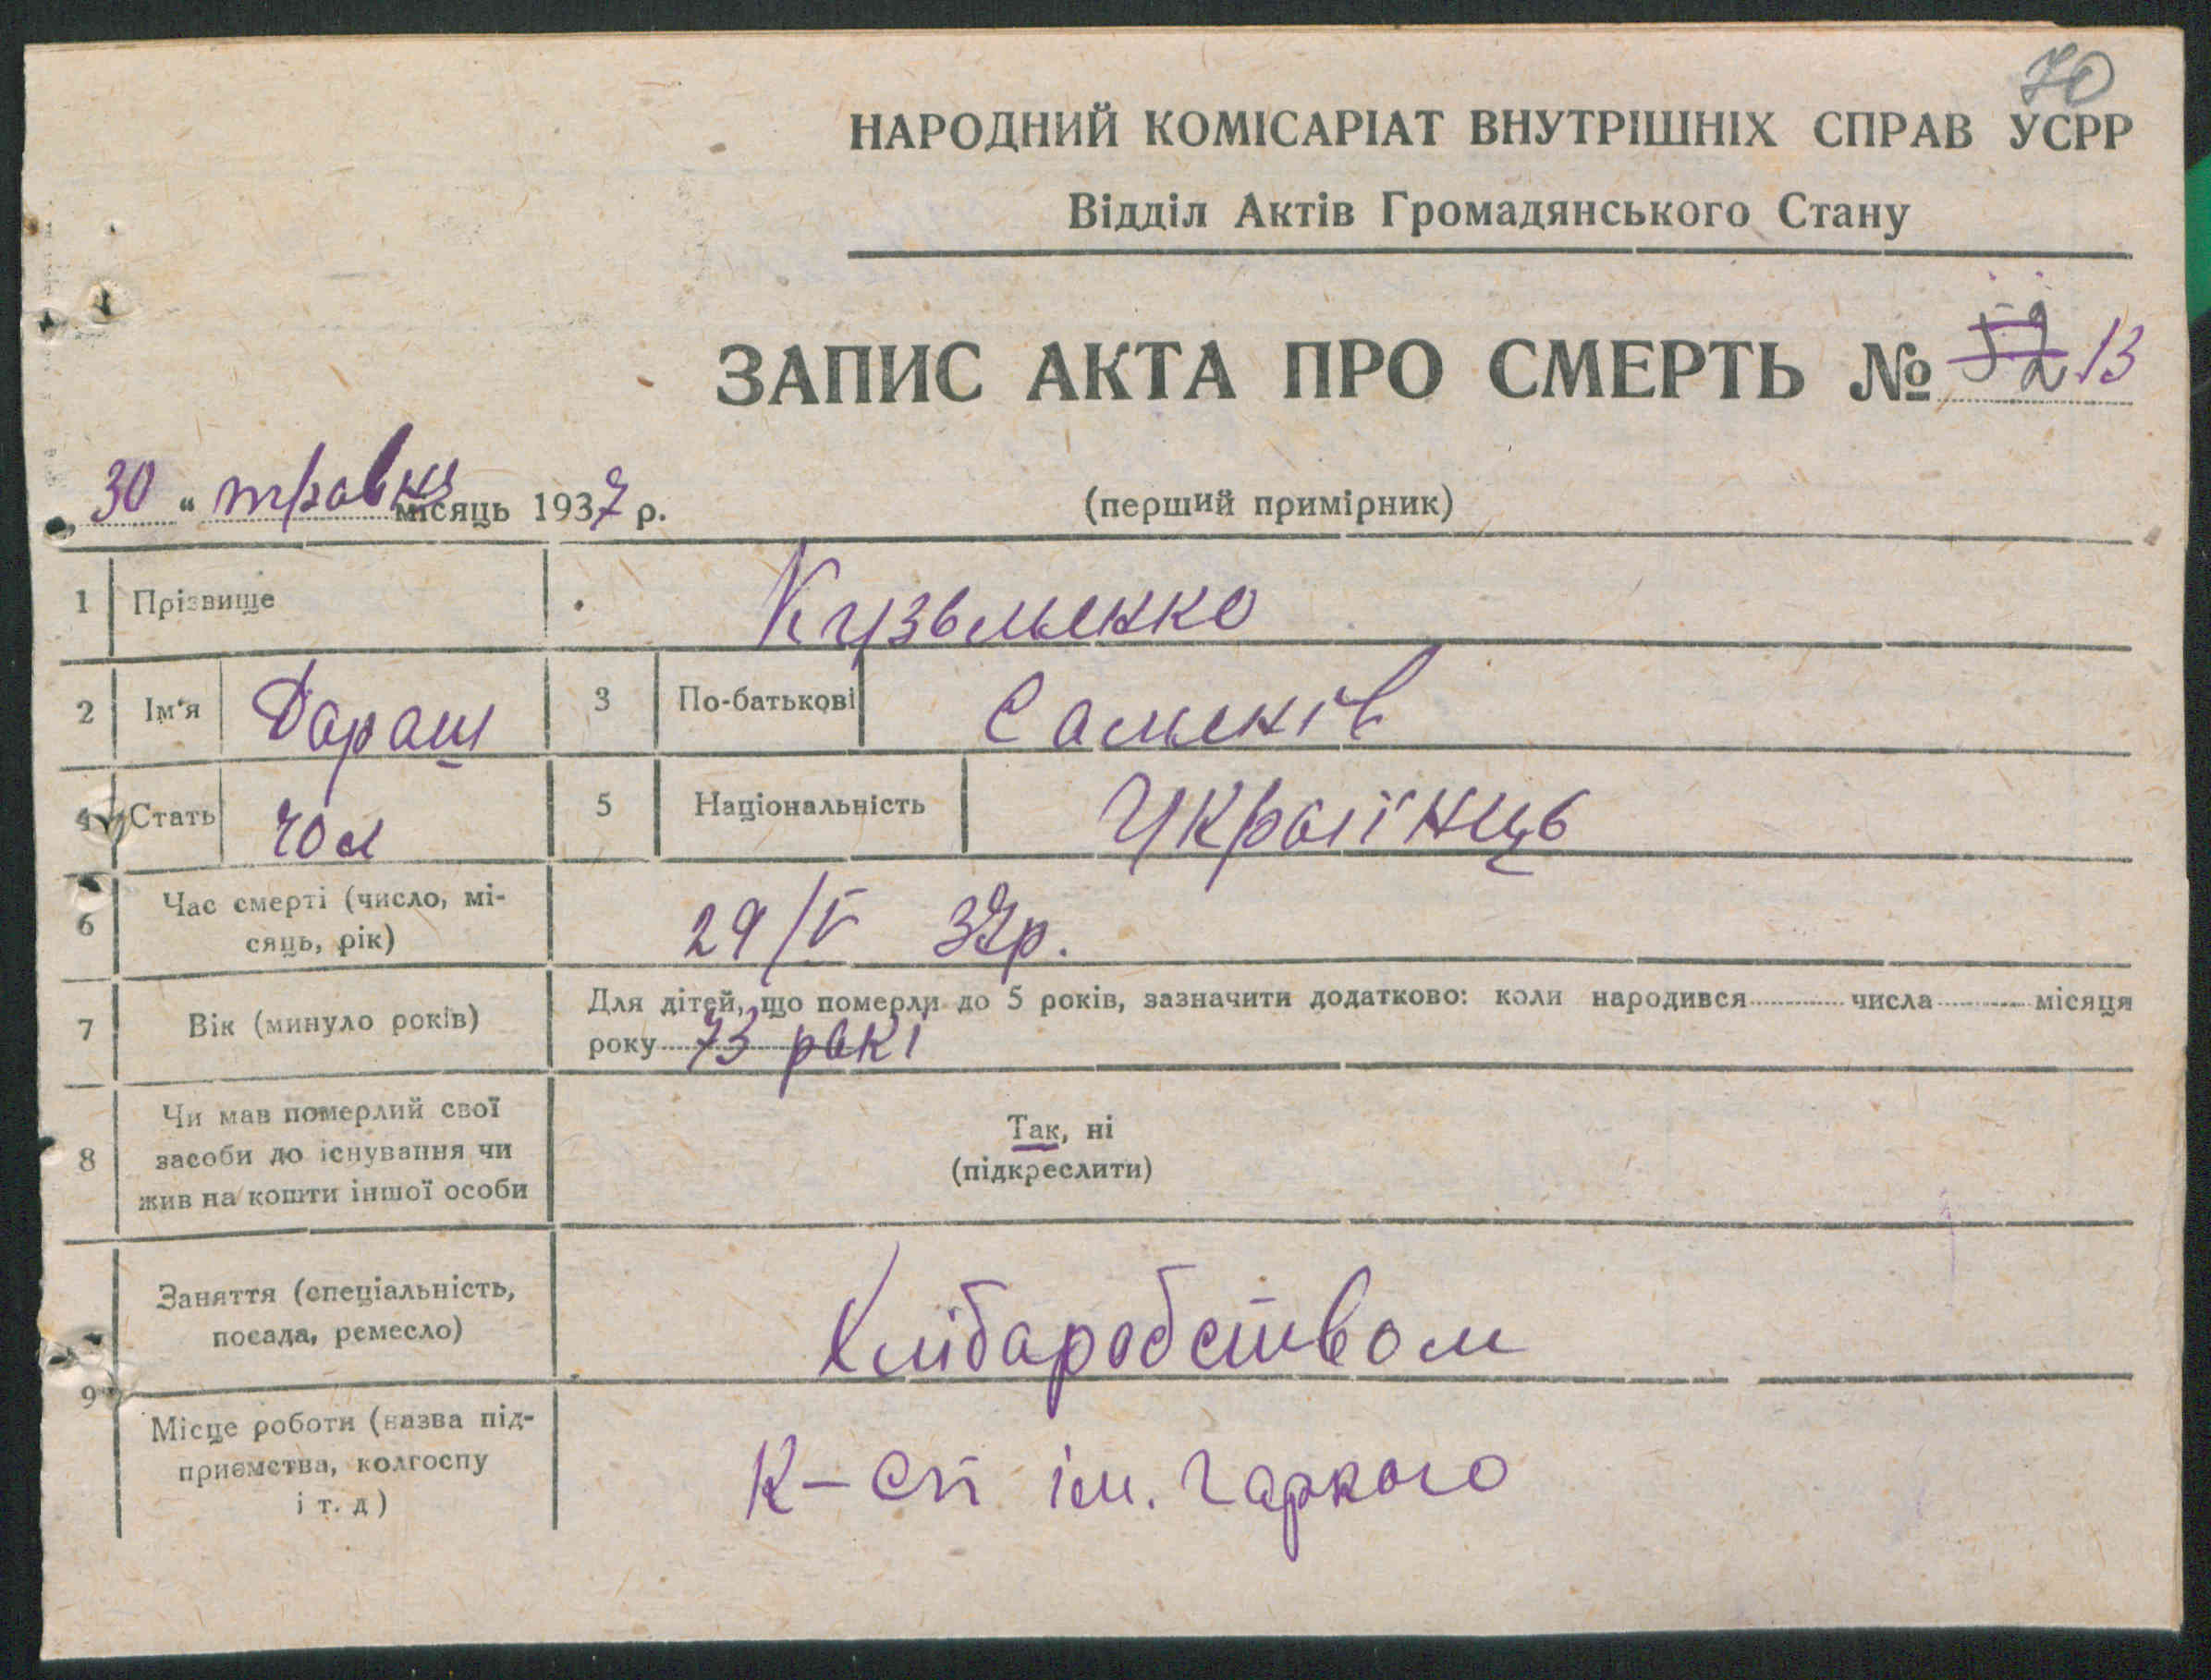 70
НАРОДНИЙ КОМІСАРІАТ ВНУТРІШНІХ СПРАВ УСРР
Відділ Актів Громадянського Стану
ЗАПИС АКТА ПРО СМЕРТЬ № 52 13
„30“ травня місяць 1937 р.
(перший примірник)
1 Прізвище Кузьменко
2 Ім'я Дараш 3 По-батькові Саменів
4 Стать чол 5 Національність Українець
6 Час смерті (число, мі-
сяць, рік) 29/V 37р.
7 Вік (минуло років) Для дітей, що померли до 5 років, зазначити додатково: коли народився числа місяця
року 73 рокі
8 Чи мав померлий свої
засоби до існування чи
жив на кошти іншої особи
Так, ні
(підкреслити)
9 Заняття (спеціальність,
посада, ремесло) Хлібаробством
Місце роботи (назва під-
приємства, колгоспу
і т. д) К-сп ім. Гаркого